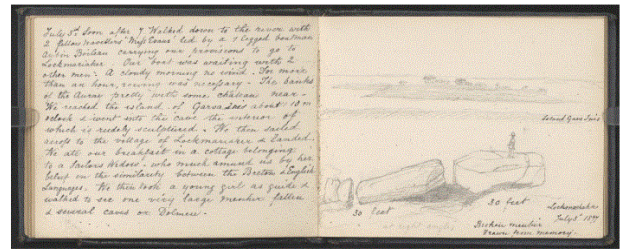 July 3rd Soon after 7 Walked down to the river with
2 fellow travellers led by a 1 legged boatman
carrying our provisions to go to
Lockmariaker. Our boat was waiting with 2
other men. A cloudy morning no wind. For more
than an hour, rowing was necessary. The banks
of the Auray pretty with some château near.
We reached the island of Gavr Inis about 10
oclock & went into the cave the interior of
which is rudely sculptured. We then sailed
across to the village of Lockmariaker & landed.
We ate our breakfast in a cottage belonging
to a Sailors Widow. who much amused us by her
on the similarity between the Breton & English
Languages. We then took a young girl as guide &
walked to see one very large menhir fallen
& several caves or Dolmen.
Island Gavr Inis
30 feet
30 feet
at right angles
Lockmariaker
July 3rd
Broken menhir
Drawn from memory.